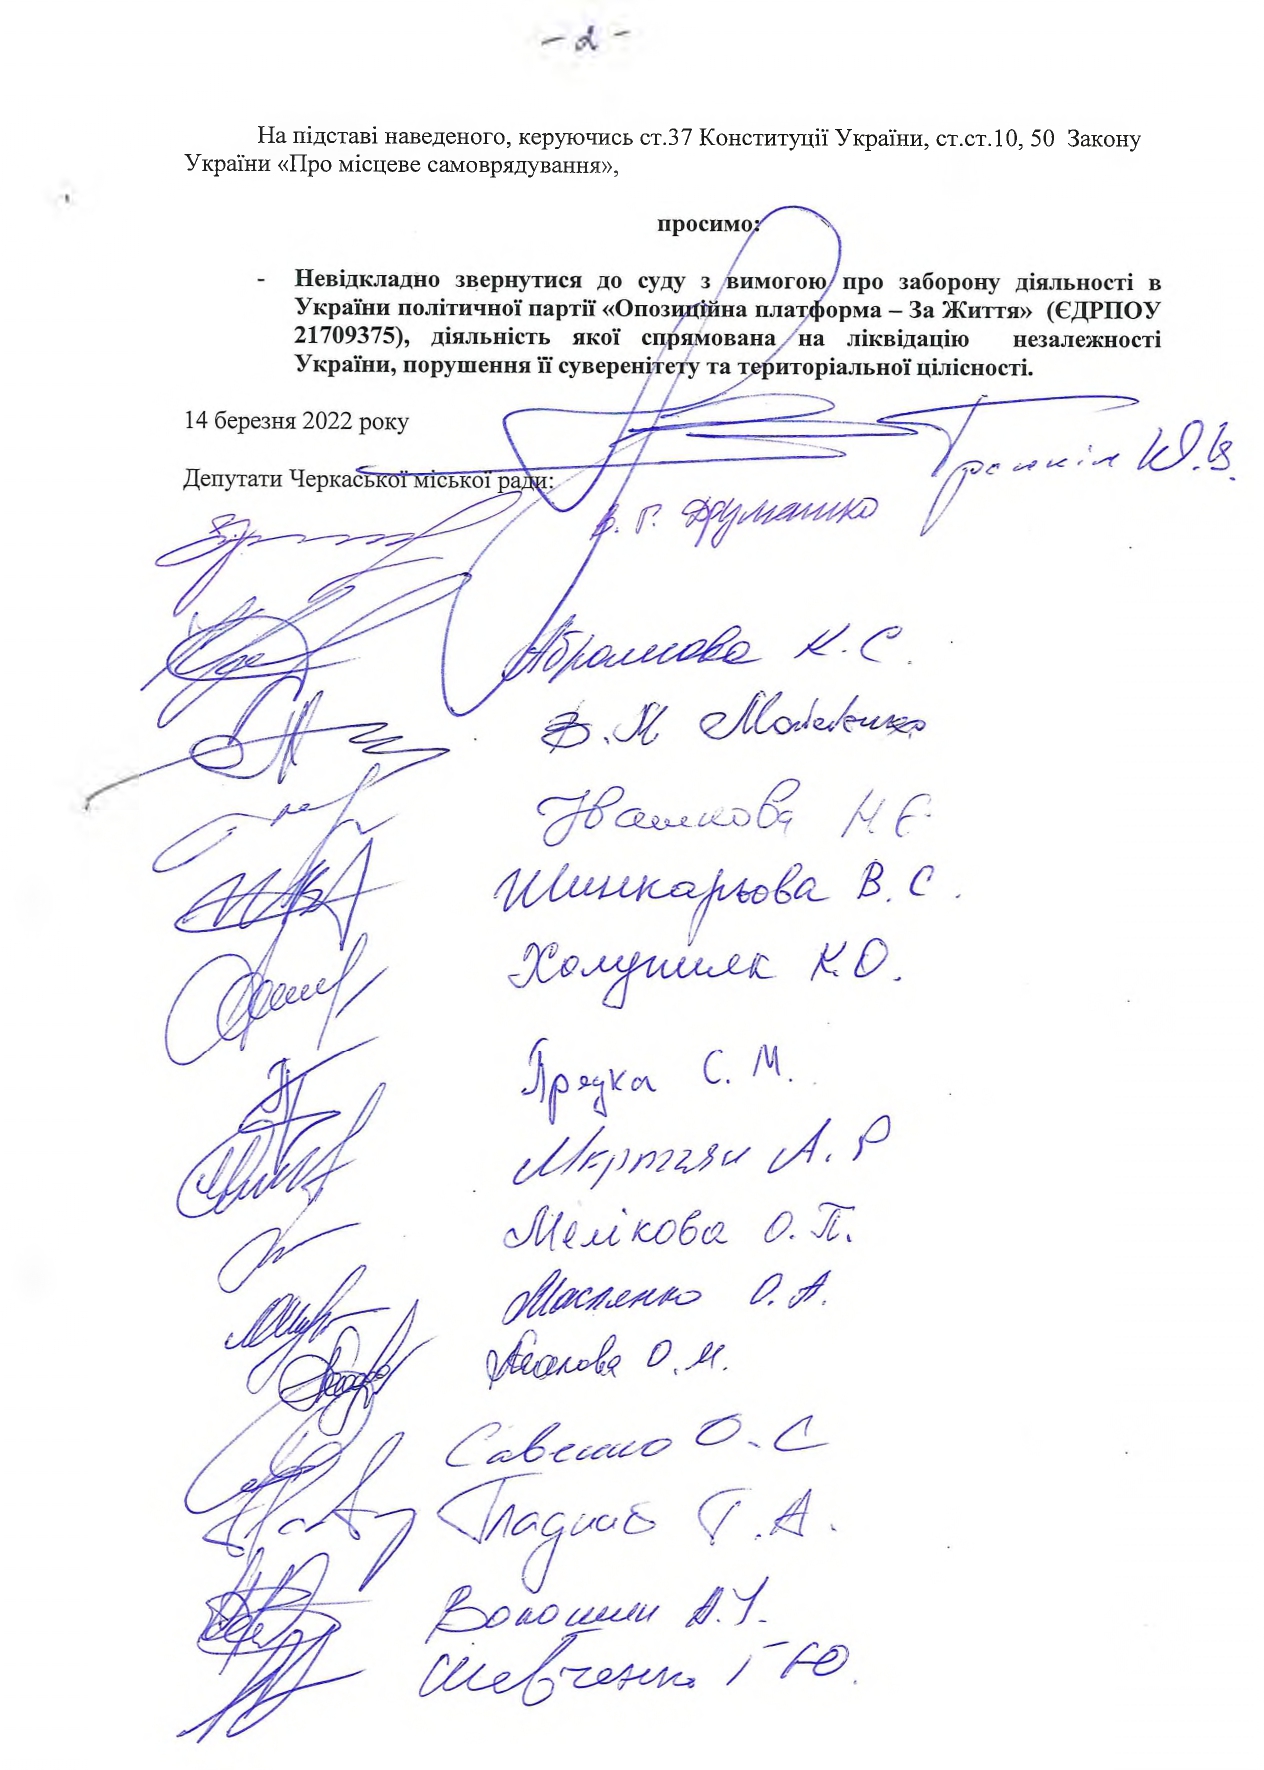 - 2 -
На підставі наведеного, керуючись ст.37 Конституції України, ст.ст.10, 50 Закону
України «Про місцеве самоврядування»,
просимо:
- Невідкладно звернутися до суду з вимогою про заборону діяльності в
України політичної партії «Опозиційна платформа – За Життя» (ЄДРПОУ
21709375), діяльність якої спрямована на ліквідацію незалежності
України, порушення її суверенітету та територіальної цілісності.
14 березня 2022 року
Ю.В.
Депутати Черкаської міської ради:
В. Г. Друмашко
Абрамова К. С.
В. М
Івашкова Н Є.
Шинкарьова В. С.
Холупняк К. О.
Прядка С. М.
Мкртчян А. Р
Мелікова О. П.
Масленко О. А.
О. М.
Савенко О. С
Гладкий Г. А.
Волошин
Шевченко Г Ю.